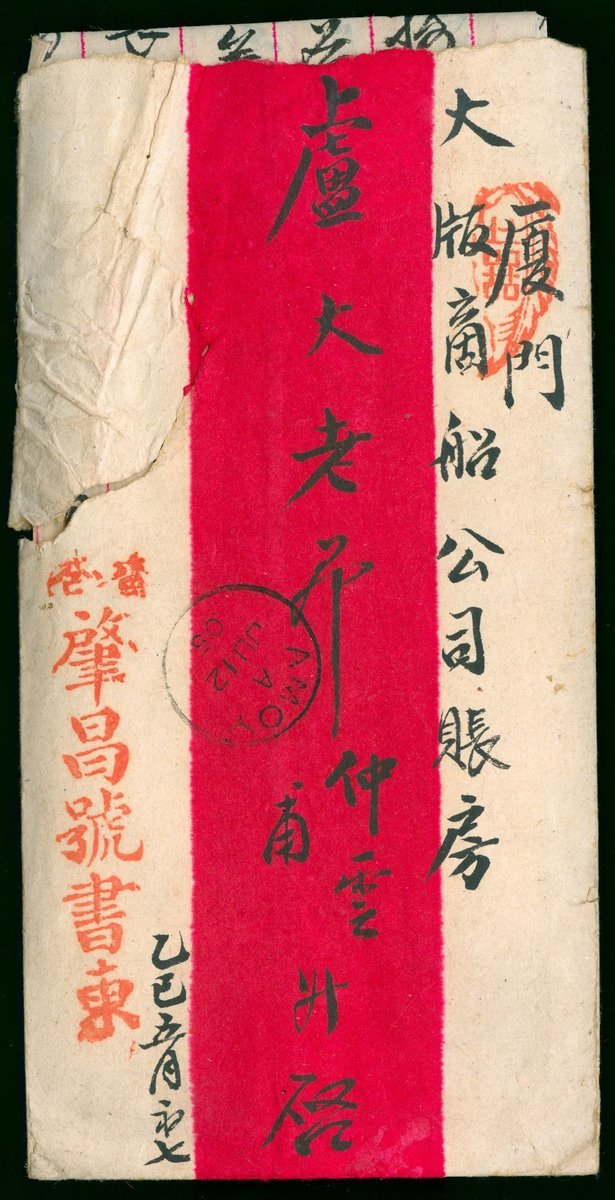 廈門
大版商船公司賬房
上
盧大老爺
仲雲
甫
升啓
香港
肇昌號書柬
乙巳五月初七
AMOY
A
JU 12
05